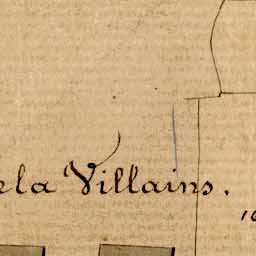 ela Villains.